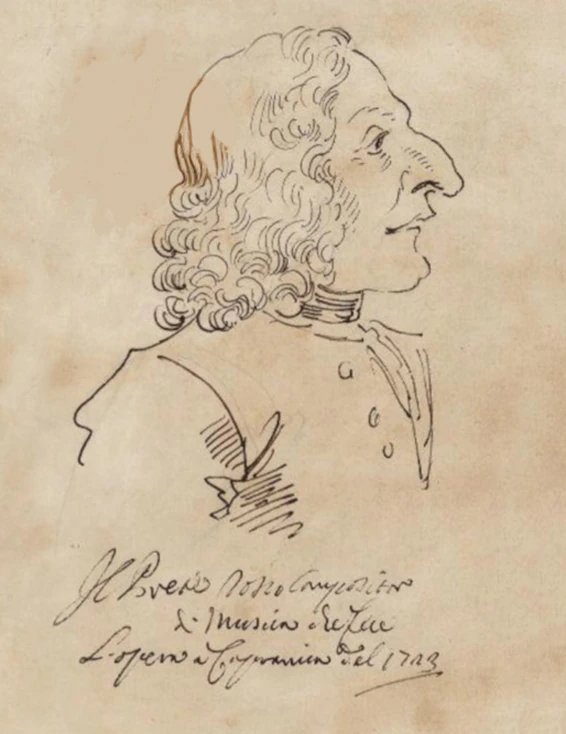 Il Prete Rosso Compositore
di Musica che fece
L'opera a Capranica del 1723